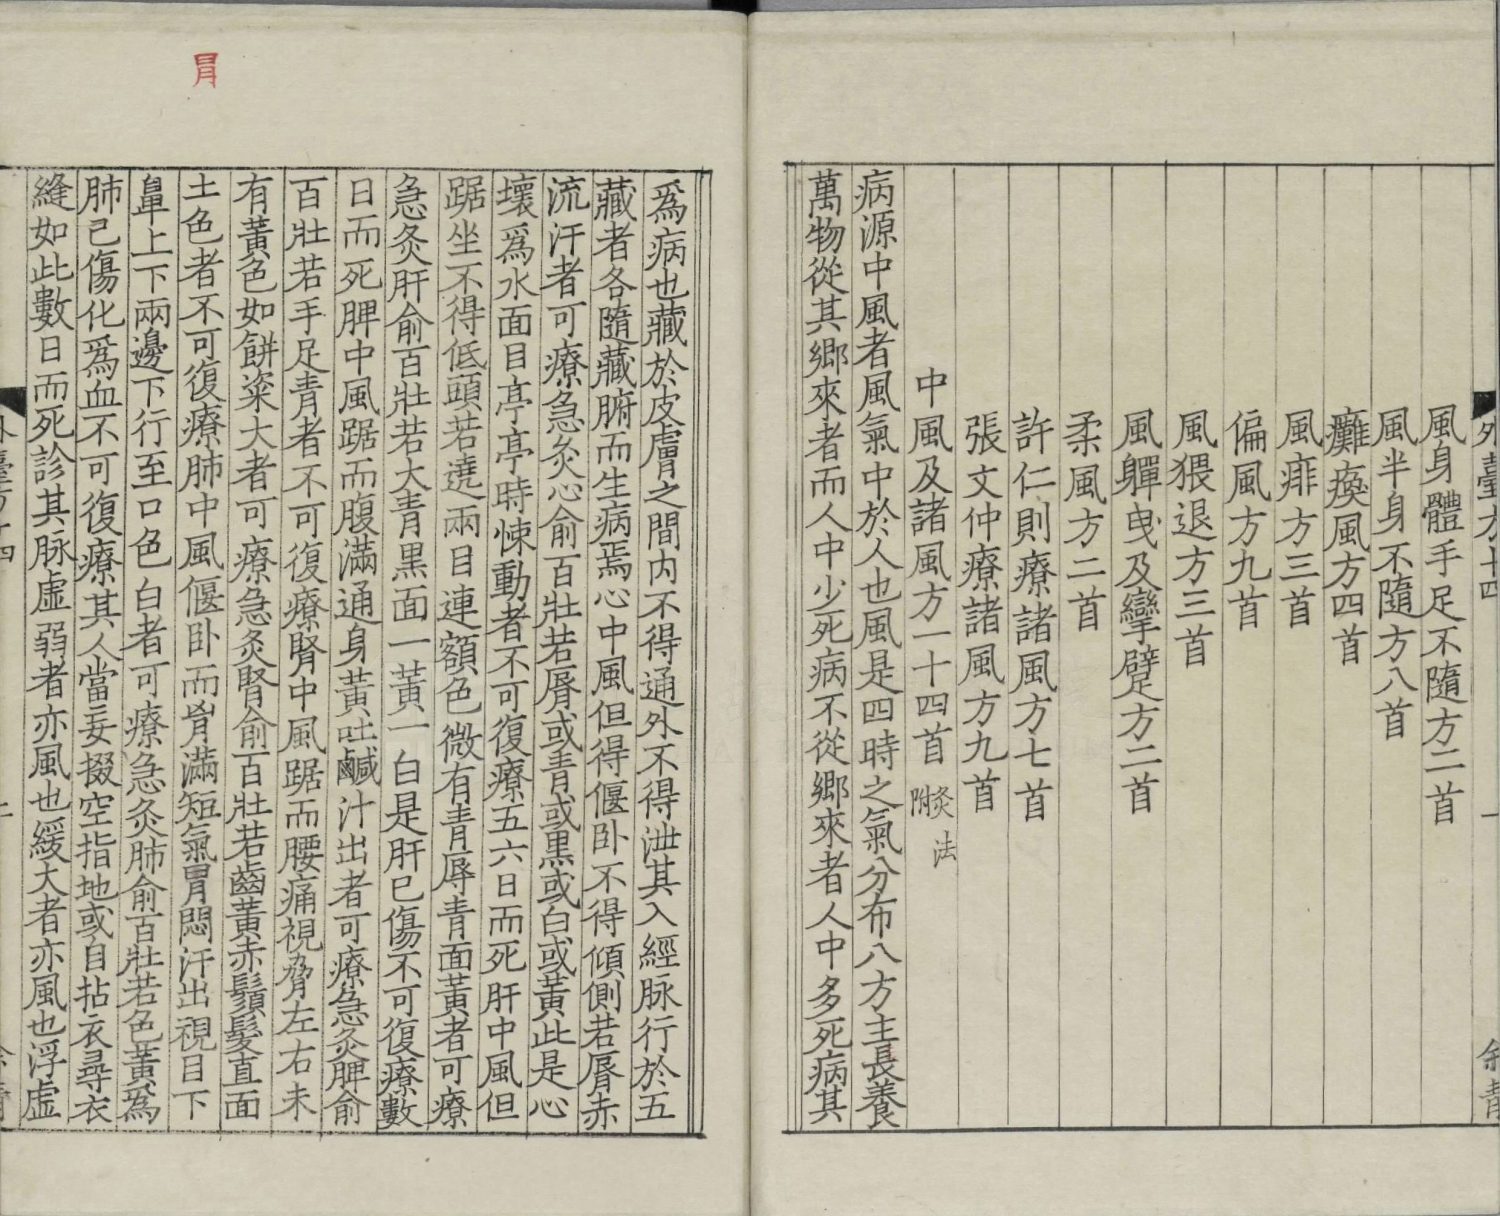 外臺方十四 一 余青
風身體手足不隨方二首
風半身不隨方八首
癱瘓風方四首
風痱方三首
偏風方九首
風猥退方三首
風軃曳及攣躄方二首
柔風方二首
許仁則療諸風方七首
張文仲療諸風方九首
中風及諸風方一十四首 灸法附
病源中風者風氣中於人也風是四時之氣分布八方主長養
萬物從其鄉來者而人中少死病不從鄉來者人中多死病其
爲病也藏於皮膚之間内不得通外不得泄其入經脉行於五
藏者各隨藏腑而生病焉心中風但得偃卧不得傾側若脣赤
流汗者可療急灸心俞百壯若脣或青或黒或白或黃此是心
壞爲水面目亭亭時悚動者不可復療五六日而死肝中風但
踞坐不得低頭若遶兩目連額色微有青辱青面黃者可療
急灸肝俞百壯若大青黒面一黃一白是肝已傷不可復療數
日而死脾中風踞而腹滿通身黃吐鹹汁出者可療急灸脾俞
百壯若手足青者不可復療腎中風踞而腰痛視脅左右未
有黃色如餅粢大者可療急灸腎俞百壯若齒黃赤鬚髮直面
土色者不可復療肺中風偃卧而胷滿短氣冐悶汗出視目下
鼻上下兩邊下行至口色白者可療急灸肺俞百壯若色黃爲
肺已傷化爲血不可復療其人當妄掇空指地或自拈衣尋衣
縫如此數日而死診其脉虛弱者亦風也緩大者亦風也浮虛
外臺方十四
冐